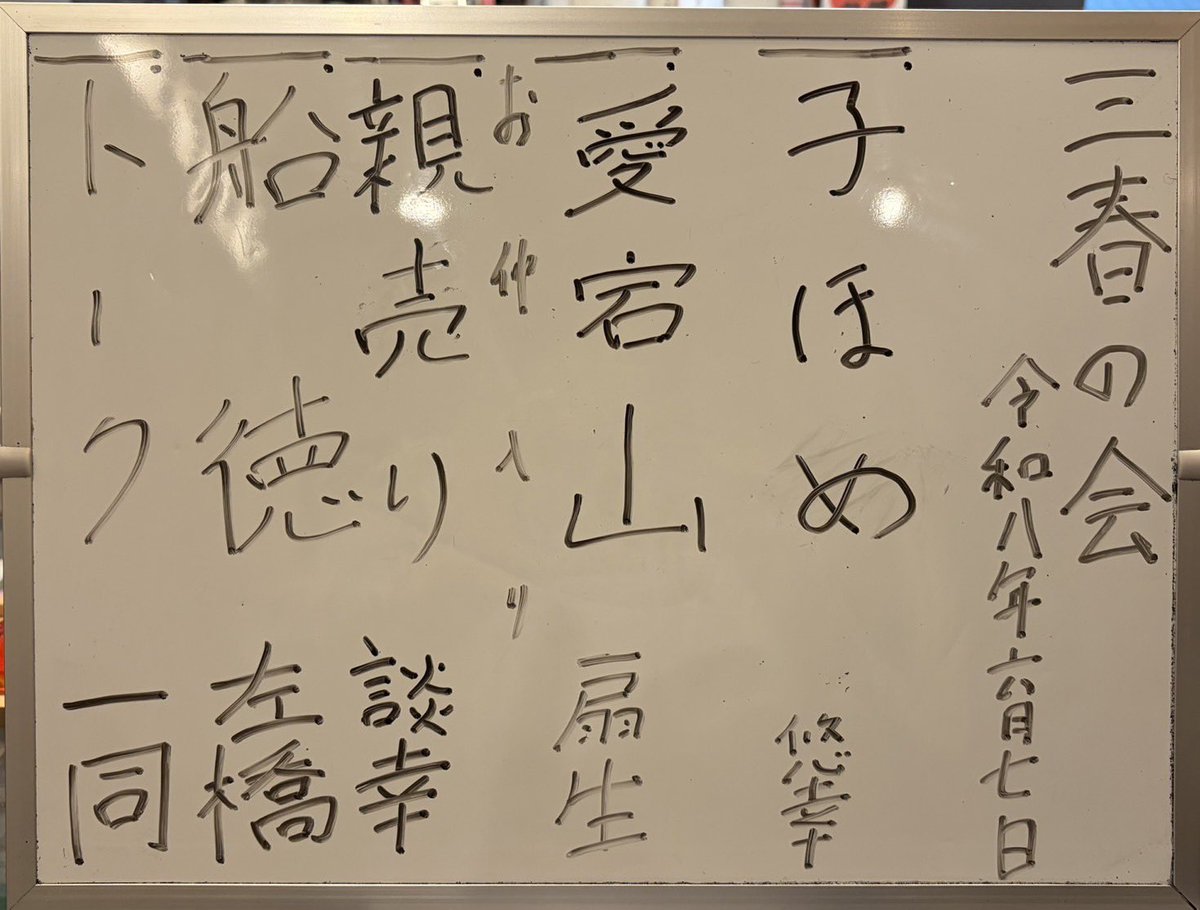 三春の会
令和八年六月七日
一、子ほめ 悠幸
一、愛宕山 扇生
お仲入り
一、親売り 談幸
一、船徳 左橋
一、トーク 一同